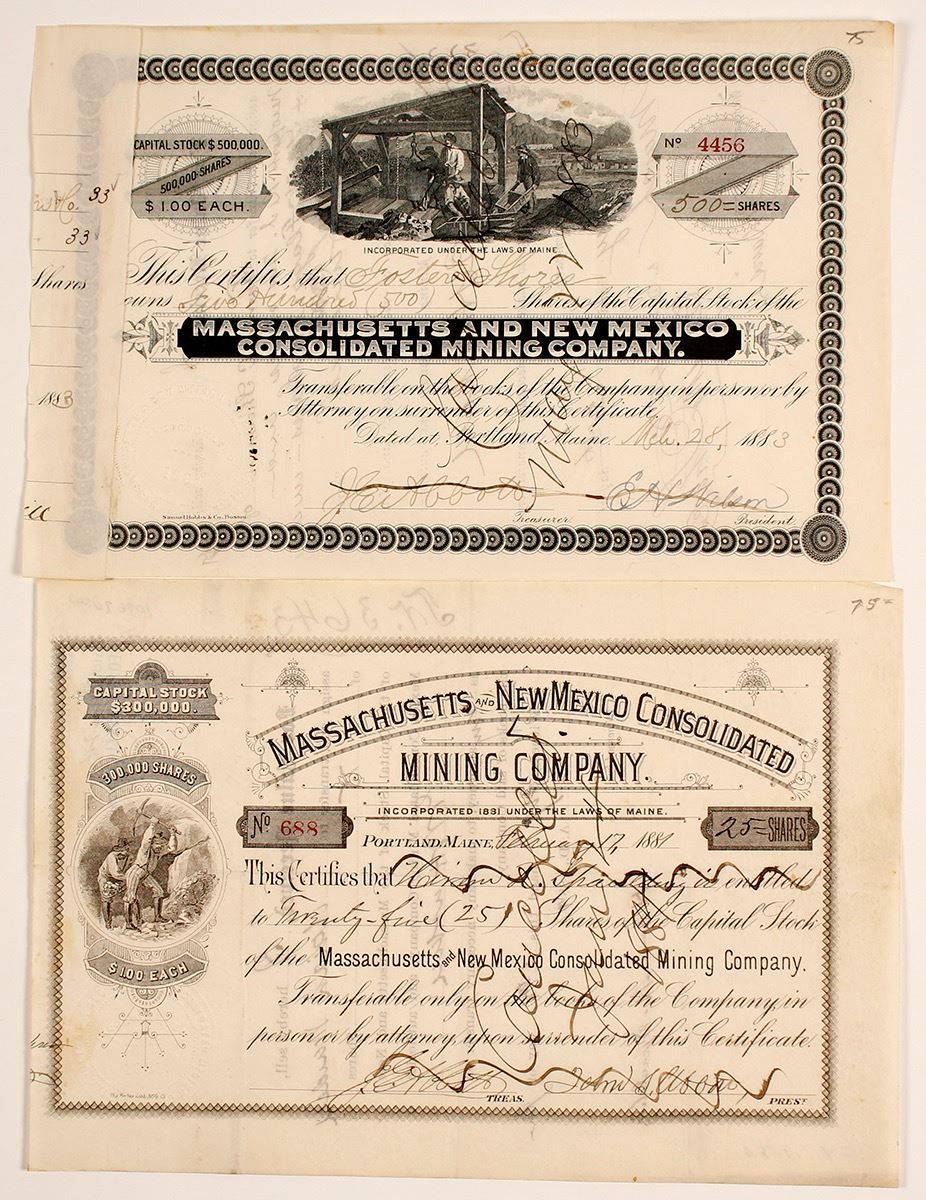 75
CAPITAL STOCK $500,000.
500,000 SHARES
$1.00 EACH.
Nº 4456
500= SHARES.
33
33
Shares
1883
INCORPORATED UNDER THE LAWS OF MAINE
This Certifies that Foster Shores
owns Five Hundred (500) Shares of the Capital Stock of the
MASSACHUSETTS AND NEW MEXICO
CONSOLIDATED MINING COMPANY.
Transferable on the books of the Company in person or by
Attorney on surrender of this Certificate.
Dated at Portland, Maine, Feb. 28, 1883
Treasurer
President
Samuel Hobbs & Co. Boston
75=
CAPITAL STOCK
$300,000.
300,000 SHARES
$1.00 EACH
MASSACHUSETTS AND NEW MEXICO CONSOLIDATED
MINING COMPANY.
INCORPORATED 1881 UNDER THE LAWS OF MAINE.
Nº 688
25= SHARES
PORTLAND, MAINE, February 17, 1881
This Certifies that Hiram A. Spaulding is entitled
to Twenty-five (25) Shares of the Capital Stock
of the Massachusetts and New Mexico Consolidated Mining Company.
Transferable only on the books of the Company, in
person or by attorney, upon surrender of this Certificate.
John S. Abbott
TREAS.
PREST.
Cancelled